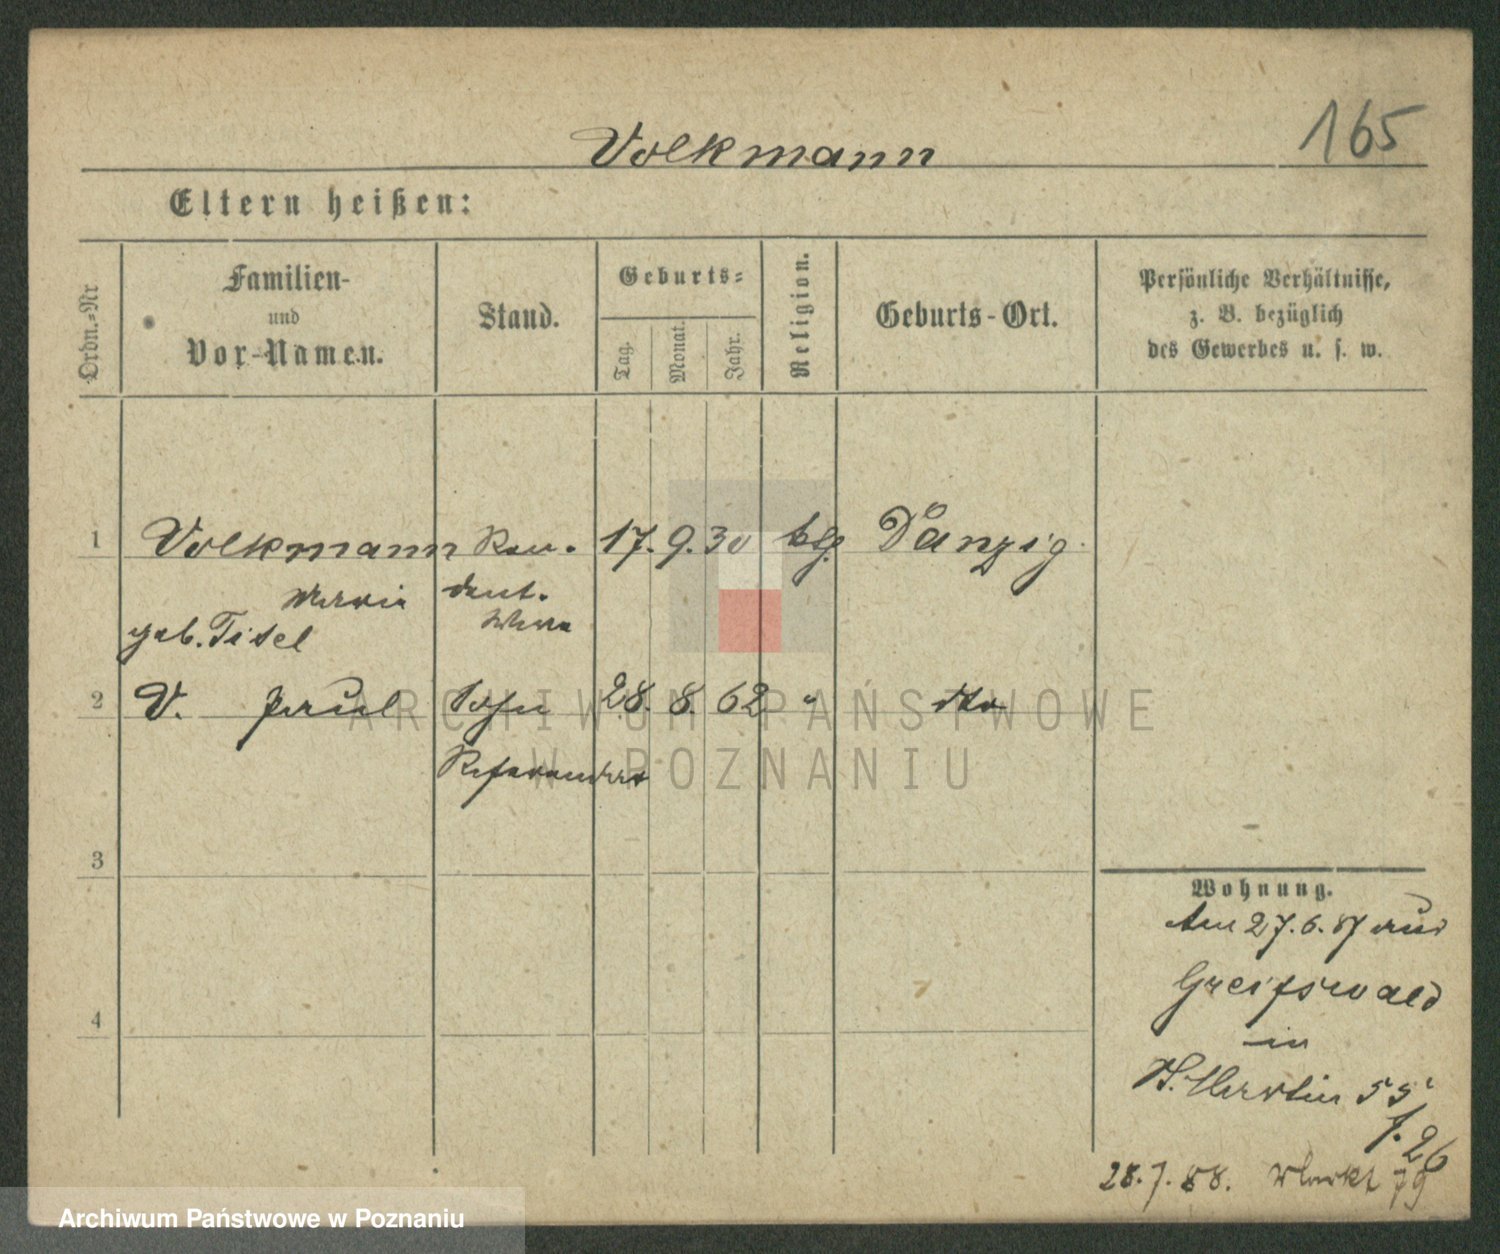 Volkmann
165
Eltern heißen:
Ordn.-Nr
Familien-
und
Vor-Namen.
Stand.
Geburts-
Tag.
Monat.
Jahr.
Religion.
Geburts-Ort.
Persönliche Verhältnisse,
z. B. bezüglich
des Gewerbes u. s. w.
1 Volkmann Ren- 17. 9. 30 Danzig
Maria dant.
geb. Titel
2 V. Paul Sohn 28. 8. 62 " dto
Referendar
3
4
Wohnung.
Am 27.6.87 aus
Greifswald
in
St. Martin 55
f. 26
28.7.88. Markt 79
ARCHIWUM PAŃSTWOWE
W POZNANIU
Archiwum Państwowe w Poznaniu